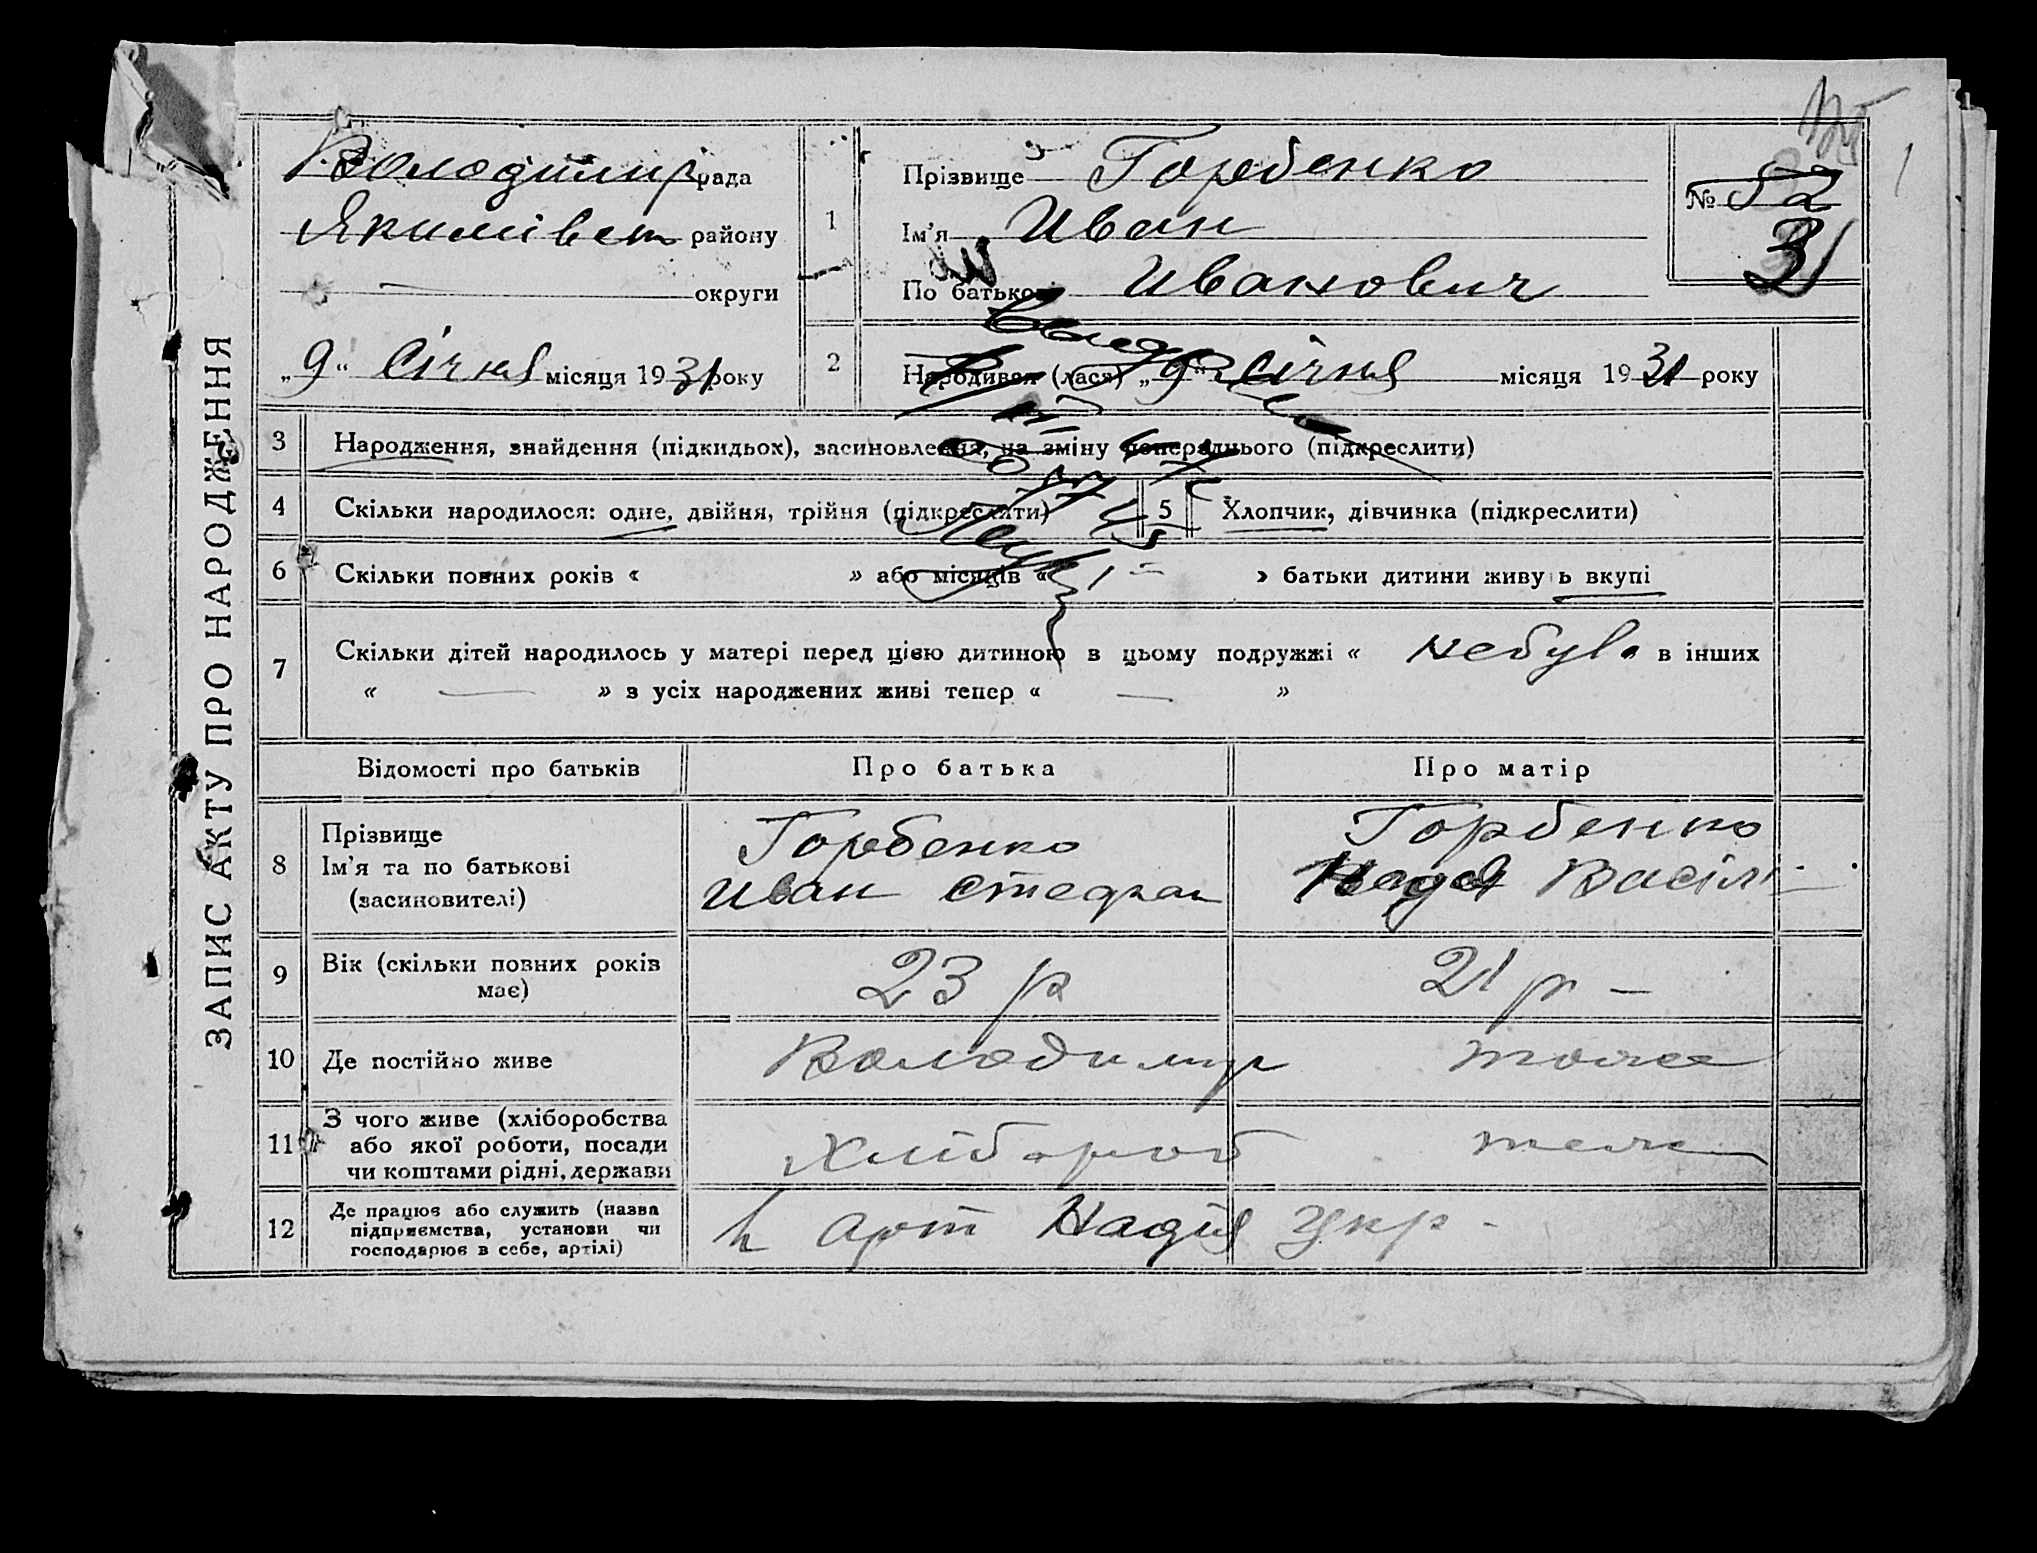 ЗАПИС АКТУ ПРО НАРОДЖЕННЯ
Володимир рада
Якимівськ району
округи
„9“ Січня місяця 1931 року
1
Прізвище Горбенко
Ім'я Иван
По батькові Иванович
№ 52
31
1
2
Народився (лася) „9“ січня місяця 1931 року
3 Народження, знайдення (підкидьох), засиновлення, на зміну попереднього (підкреслити)
4 Скільки народилося: одне, двійня, трійня (підкреслити)
5 Хлопчик, дівчинка (підкреслити)
6 Скільки повних років « » або місяців « » батьки дитини живуть вкупі
7 Скільки дітей народилось у матері перед цією дитиною в цьому подружжі « небул» в інших
« — » з усіх народжених живі тепер « — »
Відомості про батьків Про батька Про матір
8 Прізвище
Ім'я та по батькові
(засиновителі)
Горбенко
Иван Стефан
Горбенко
Надя Васілі
9 Вік (скільки повних років має)
23 р
21 р –
10 Де постійно живе
Володимир
тоже
11 З чого живе (хліборобства
або якої роботи, посади
чи коштами рідні, держави
Хлібороб
12 Де працює або служить (назва
підприємства, установи чи
господарює в себе, артілі)
арт Надія Укр -